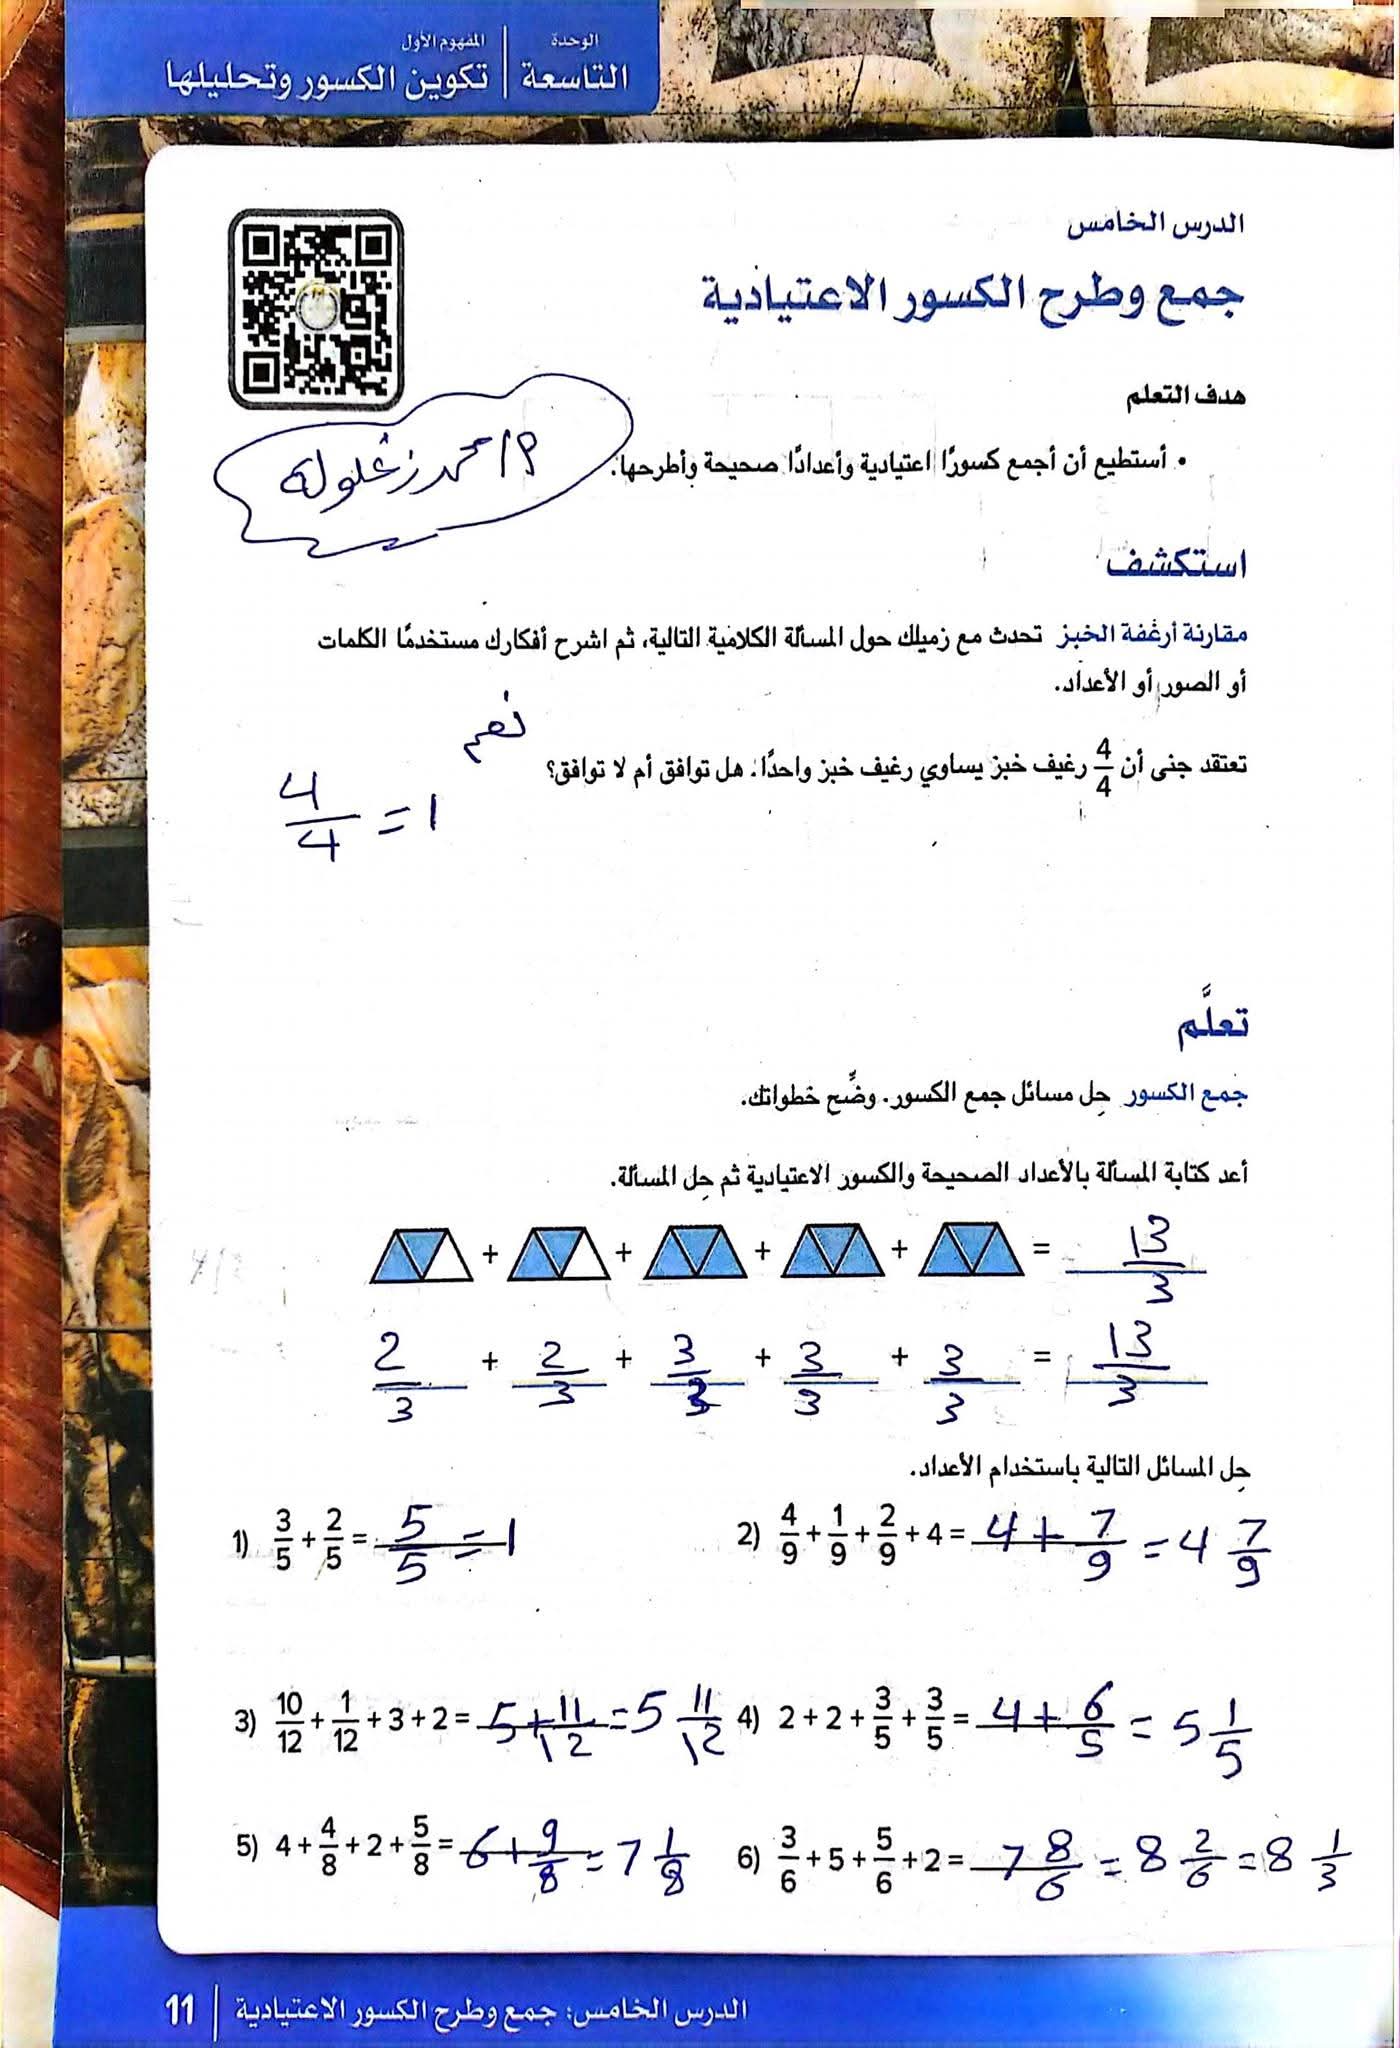 الوحدة
التاسعة
المفهوم الأول
تكوين الكسور وتحليلها
الدرس الخامس
جمع وطرح الكسور الاعتيادية
هدف التعلم
• أستطيع أن أجمع كسورًا اعتيادية وأعدادًا صحيحة وأطرحها.
م/ محمد زغلولة
استكشف
مقارنة أرغفة الخبز تحدث مع زميلك حول المسألة الكلامية التالية، ثم اشرح أفكارك مستخدمًا الكلمات
أو الصور أو الأعداد.
نعم
تعتقد جنى أن 4/4 رغيف خبز يساوي رغيف خبز واحدًا. هل توافق أم لا توافق؟
4/4 = 1
تعلَّم
جمع الكسور حِل مسائل جمع الكسور. وضِّح خطواتك.
أعد كتابة المسألة بالأعداد الصحيحة والكسور الاعتيادية ثم حِل المسألة.
+ + + + = 13/3
2/3 + 2/3 + 3/3 + 3/3 + 3/3 = 13/3
حِل المسائل التالية باستخدام الأعداد.
1) 3/5 + 2/5 = 5/5 = 1
2) 4/9 + 1/9 + 2/9 + 4 = 4 + 7/9 = 4 7/9
3) 10/12 + 1/12 + 3 + 2 = 5 + 11/12 = 5 11/12
4) 2 + 2 + 3/5 + 3/5 = 4 + 6/5 = 5 1/5
5) 4 + 4/8 + 2 + 5/8 = 6 + 9/8 = 7 1/8
6) 3/6 + 5 + 5/6 + 2 = 7 8/6 = 8 2/6 = 8 1/3
الدرس الخامس: جمع وطرح الكسور الاعتيادية | 11